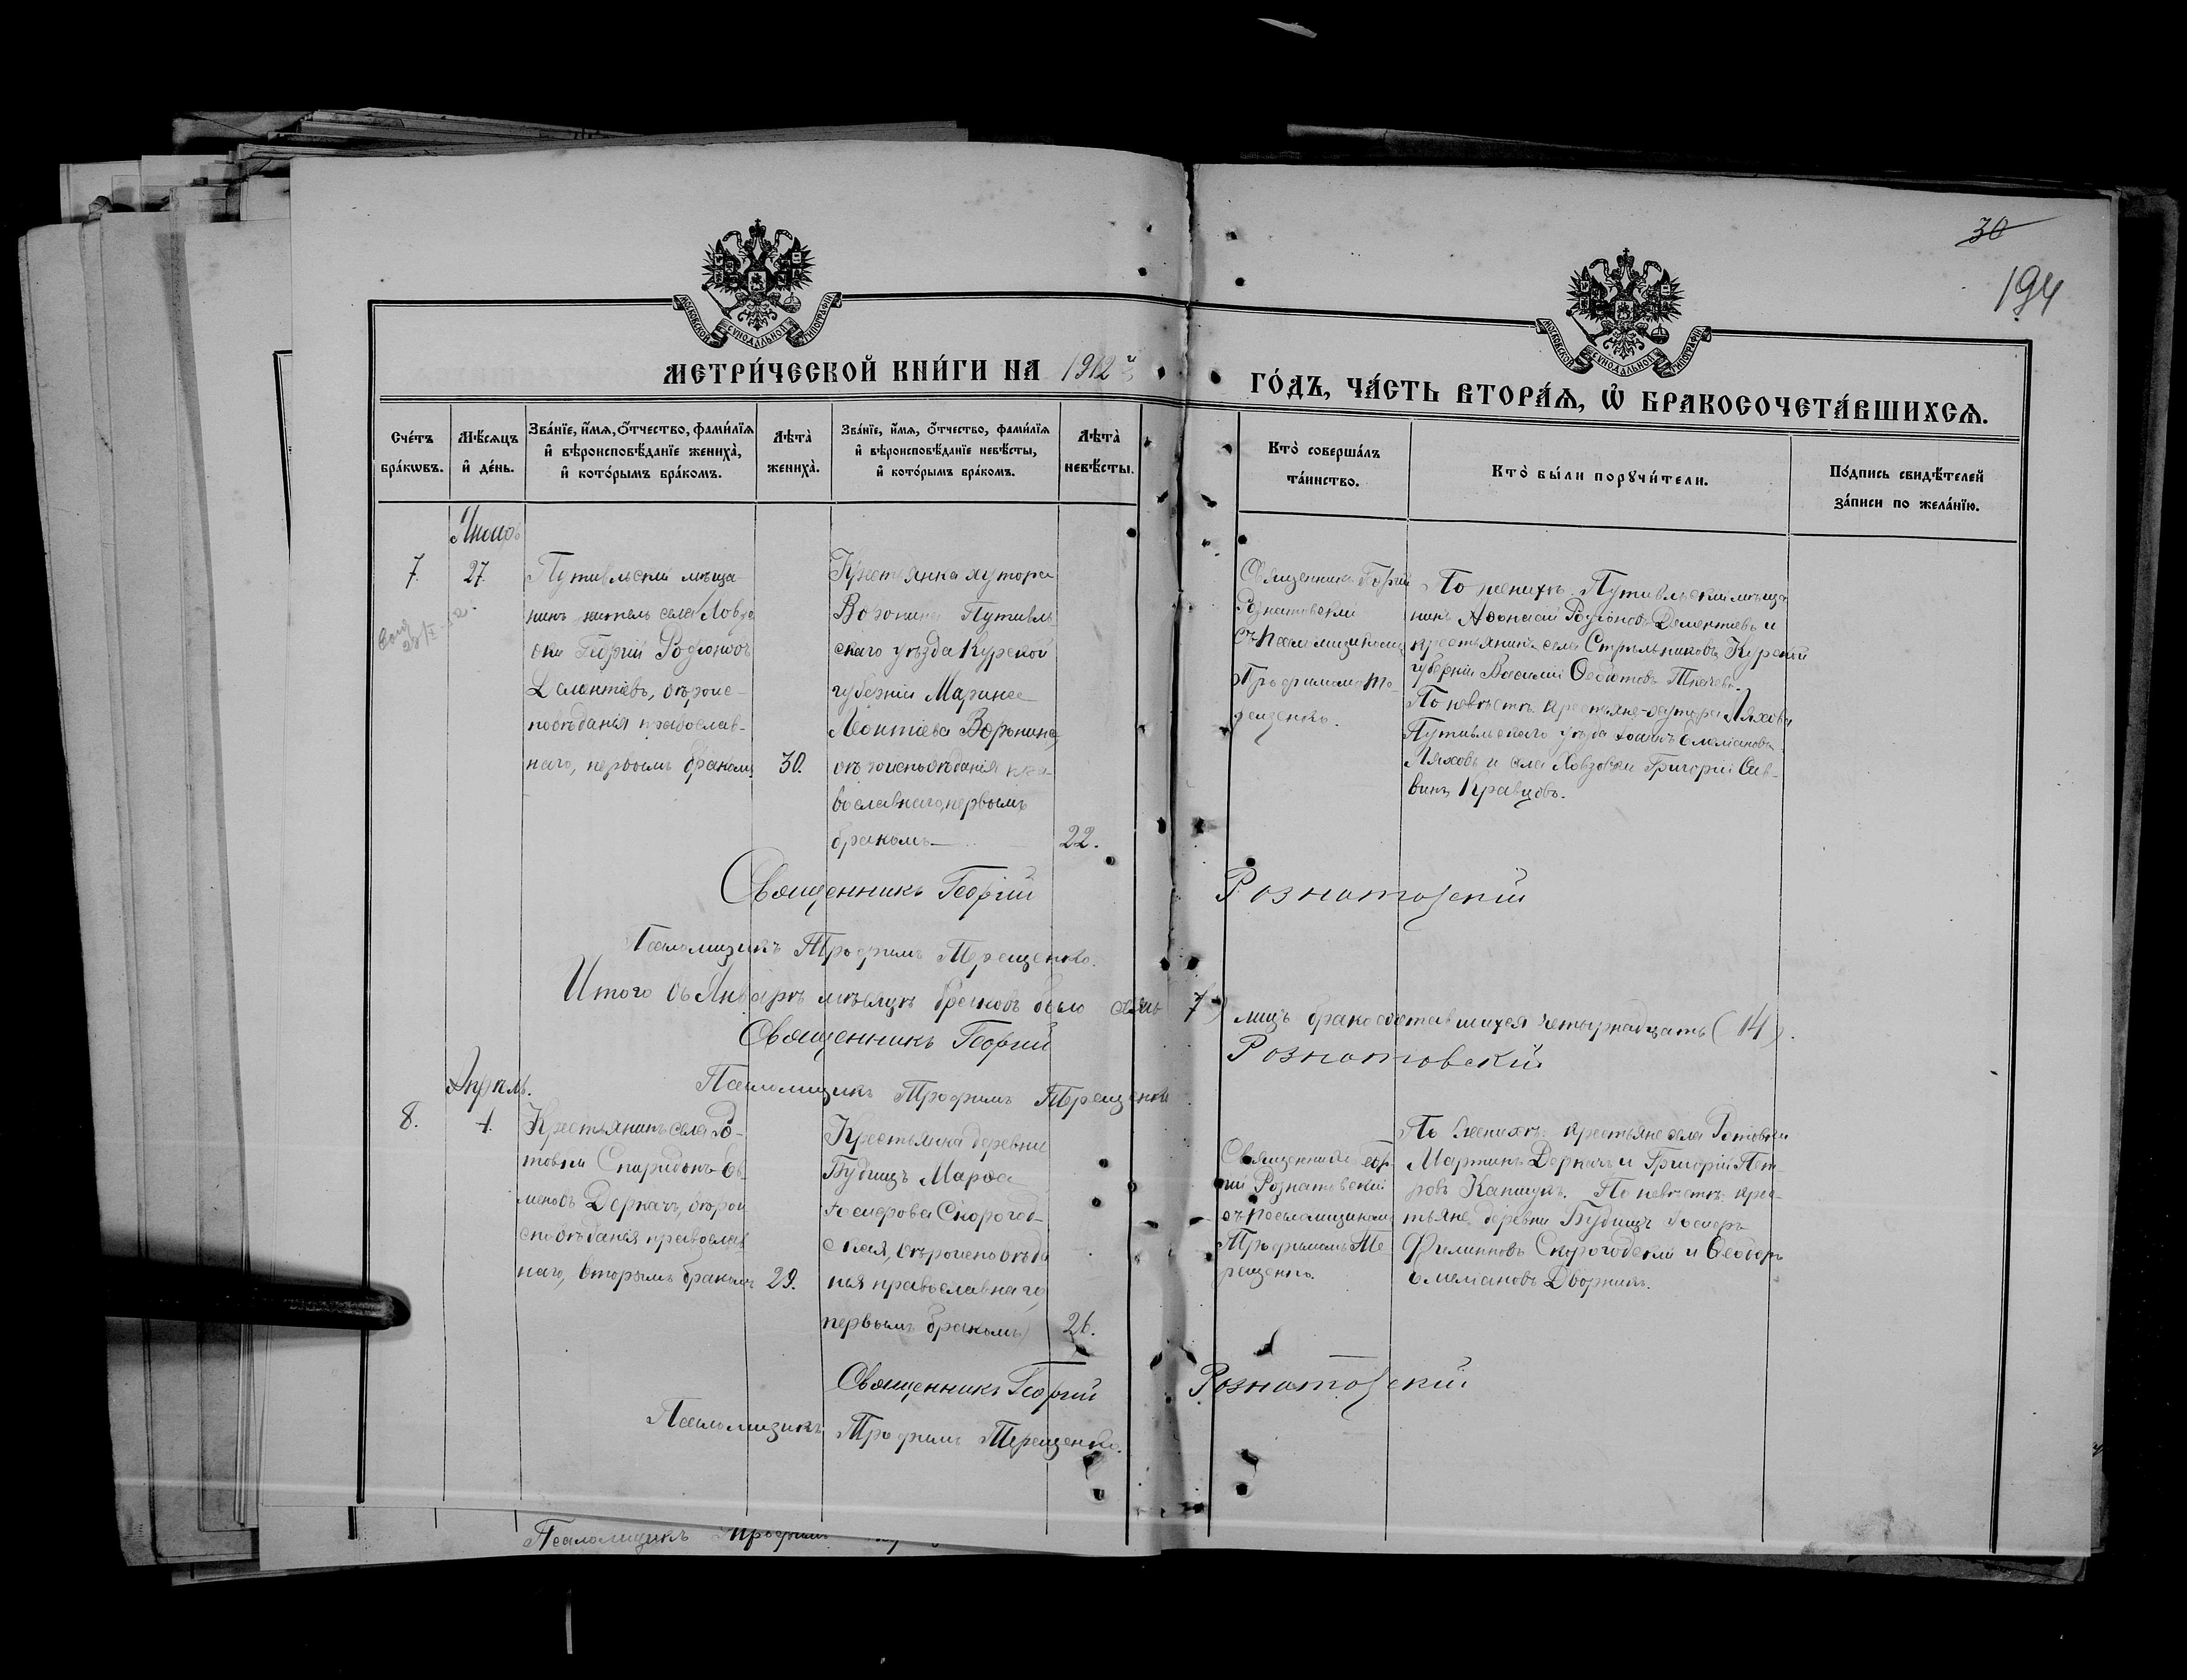 30
194
МОСКОВСКОЙ СѴНОДАЛЬНОЙ ТИПОГРАФІИ
МОСКОВСКОЙ СѴНОДАЛЬНОЙ ТИПОГРАФІИ
МЕТРИ́ЧЕСКОЙ КНИ́ГИ НА 1912й
ГО́ДЪ, ЧА́СТЬ ВТОРА́Ѧ, Ѡ҆ БРАКОСОЧЕТА́ВШИХСѦ.
Сче́тъ бра́кѡвъ.
Мѣ́сяцъ и҆ де́нь.
Зва́нїе, и҆́мѧ, ѻ҆́тчество, фами́лїѧ
и҆ вѣроисповѣ́данїе жениха̀,
и҆ кото́рымъ бра́комъ.
Лѣта̀ жениха̀.
Зва́нїе, и҆́мѧ, ѻ҆́тчество, фами́лїѧ
и҆ вѣроисповѣ́данїе невѣ́сты,
и҆ кото́рымъ бра́комъ.
Лѣта̀ невѣ́сты.
Кто̀ соверша́лъ
та́инство.
Кто̀ бы́ли порꙋчи́тели.
По́дпись свидѣ́телей
за́писи по жела́нїю.
7.
27.
Путивльскій мѣща-
нинъ житель села
Георгій Родіоновъ
Дементіевъ, вѣроис-
повѣданія православ-
наго, первымъ бракомъ
30.
Крестьянка хутора
Воронина Путивль
скаго уѣзда Курской
губерніи Марина
Леонтіева Воронина,
вѣроисповѣданія пра-
вославнаго, первымъ
бракомъ
22.
Священникъ Георгій
Рознатовскій
съ псаломщикомъ
Трофимомъ Те-
рещенко.
По женихѣ: Путивльскій мѣща
нинъ Аѳонасій Родіоновъ Дементіевъ и
крестьянинъ села Стрѣльниковъ Курской
губерніи Василій Ѳедотовъ Ткачевъ.
По невѣстѣ: крестьяне хутора Ляхова
Путивльскаго уѣзда Іоаннъ Емеліановъ
Ляховъ и села Григорій Сав-
винъ Кравцовъ.
Священникъ Георгій Рознатовскій
Псаломщикъ Трофимъ Терещенко.
Итого въ Январѣ мѣсяцѣ браковъ было семь 7) лицъ бракосочетавшихся четырнадцать (14).
Священникъ Георгій Рознатовскій
Псаломщикъ Трофимъ Терещенко
Апрѣль.
8.
Крестьянинъ села Ро-
товки Спиридонъ
меновъ Деркачъ, вѣрои
споовѣданія православ
наго, вторымъ бракомъ
29.
Крестьянка деревни
Будищъ Марѳа
Іосифова Скорогод-
ская, вѣроисповѣда
нія православнаго,
первымъ бракомъ
26.
Священникъ Геор-
гій Рознатовскій
съ псаломщикомъ
Трофимомъ Те
рещенко.
По женихѣ: крестьяне села Ротовки
Мартинъ Деркачъ и Григорій Пет-
ровъ По невѣстѣ: крес-
тьяне деревни Будищъ Іосифъ
Филипповъ Скорогодскій и Ѳеодоръ
Емеліановъ Дворникъ.
Священникъ Георгій Рознатовскій
Псаломщикъ Трофимъ Терещенко.
Псаломщикъ Трофимъ